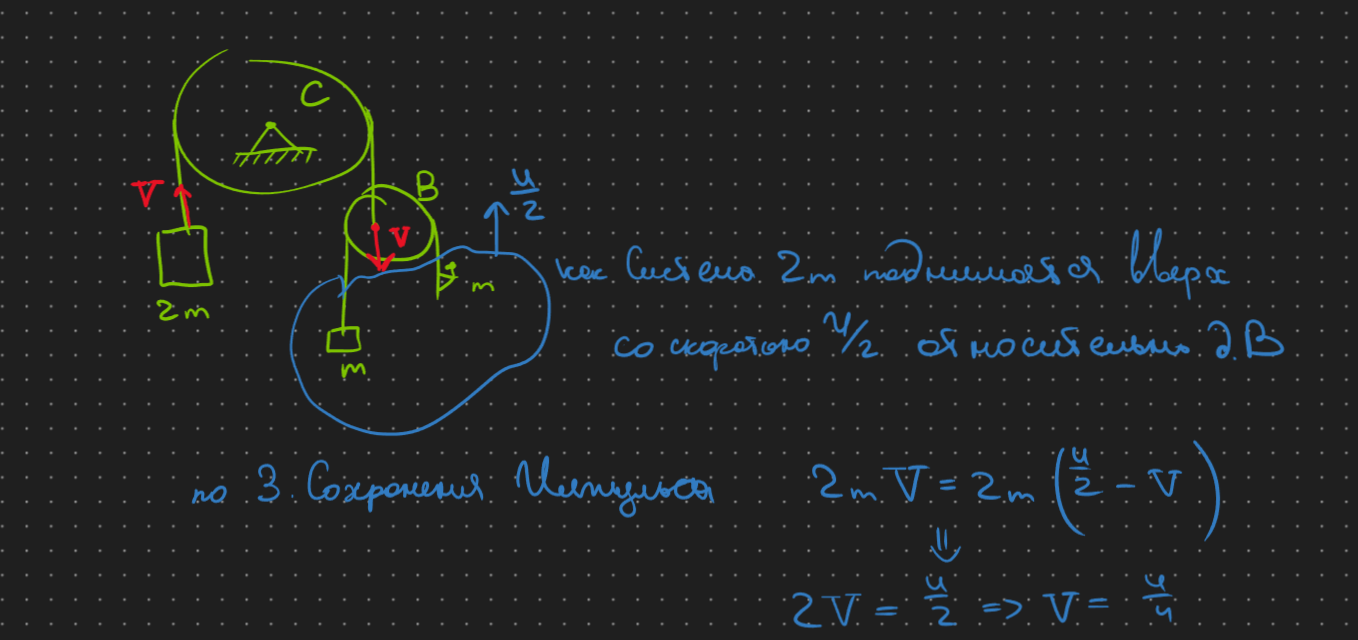 C
B
V
V
u/2
2m
m
m
как Система 2m поднимается Вверх
со скоростью u/2 относительно д.B
по З. Сохранения Импульса 2m V = 2m (u/2 - V)
⇓
2V = u/2 => V = u/4